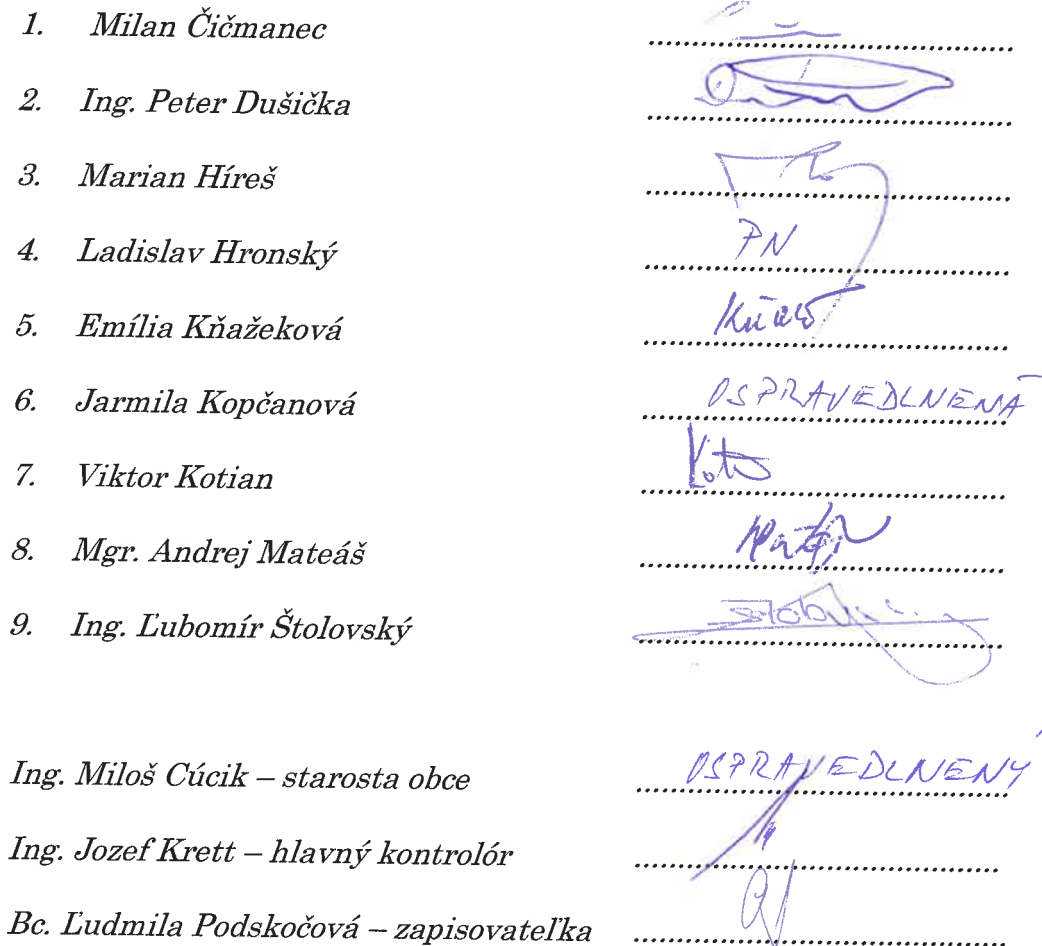 1. Milan Čičmanec
2. Ing. Peter Dušička
3. Marian Híreš
4. Ladislav Hronský PN
5. Emília Kňažeková
6. Jarmila Kopčanová OSPRAVEDLNENÁ
7. Viktor Kotian
8. Mgr. Andrej Mateáš
9. Ing. Ľubomír Štolovský
Ing. Miloš Cúcik – starosta obce OSPRAVEDLNENÝ
Ing. Jozef Krett – hlavný kontrolór
Bc. Ľudmila Podskočová – zapisovateľka